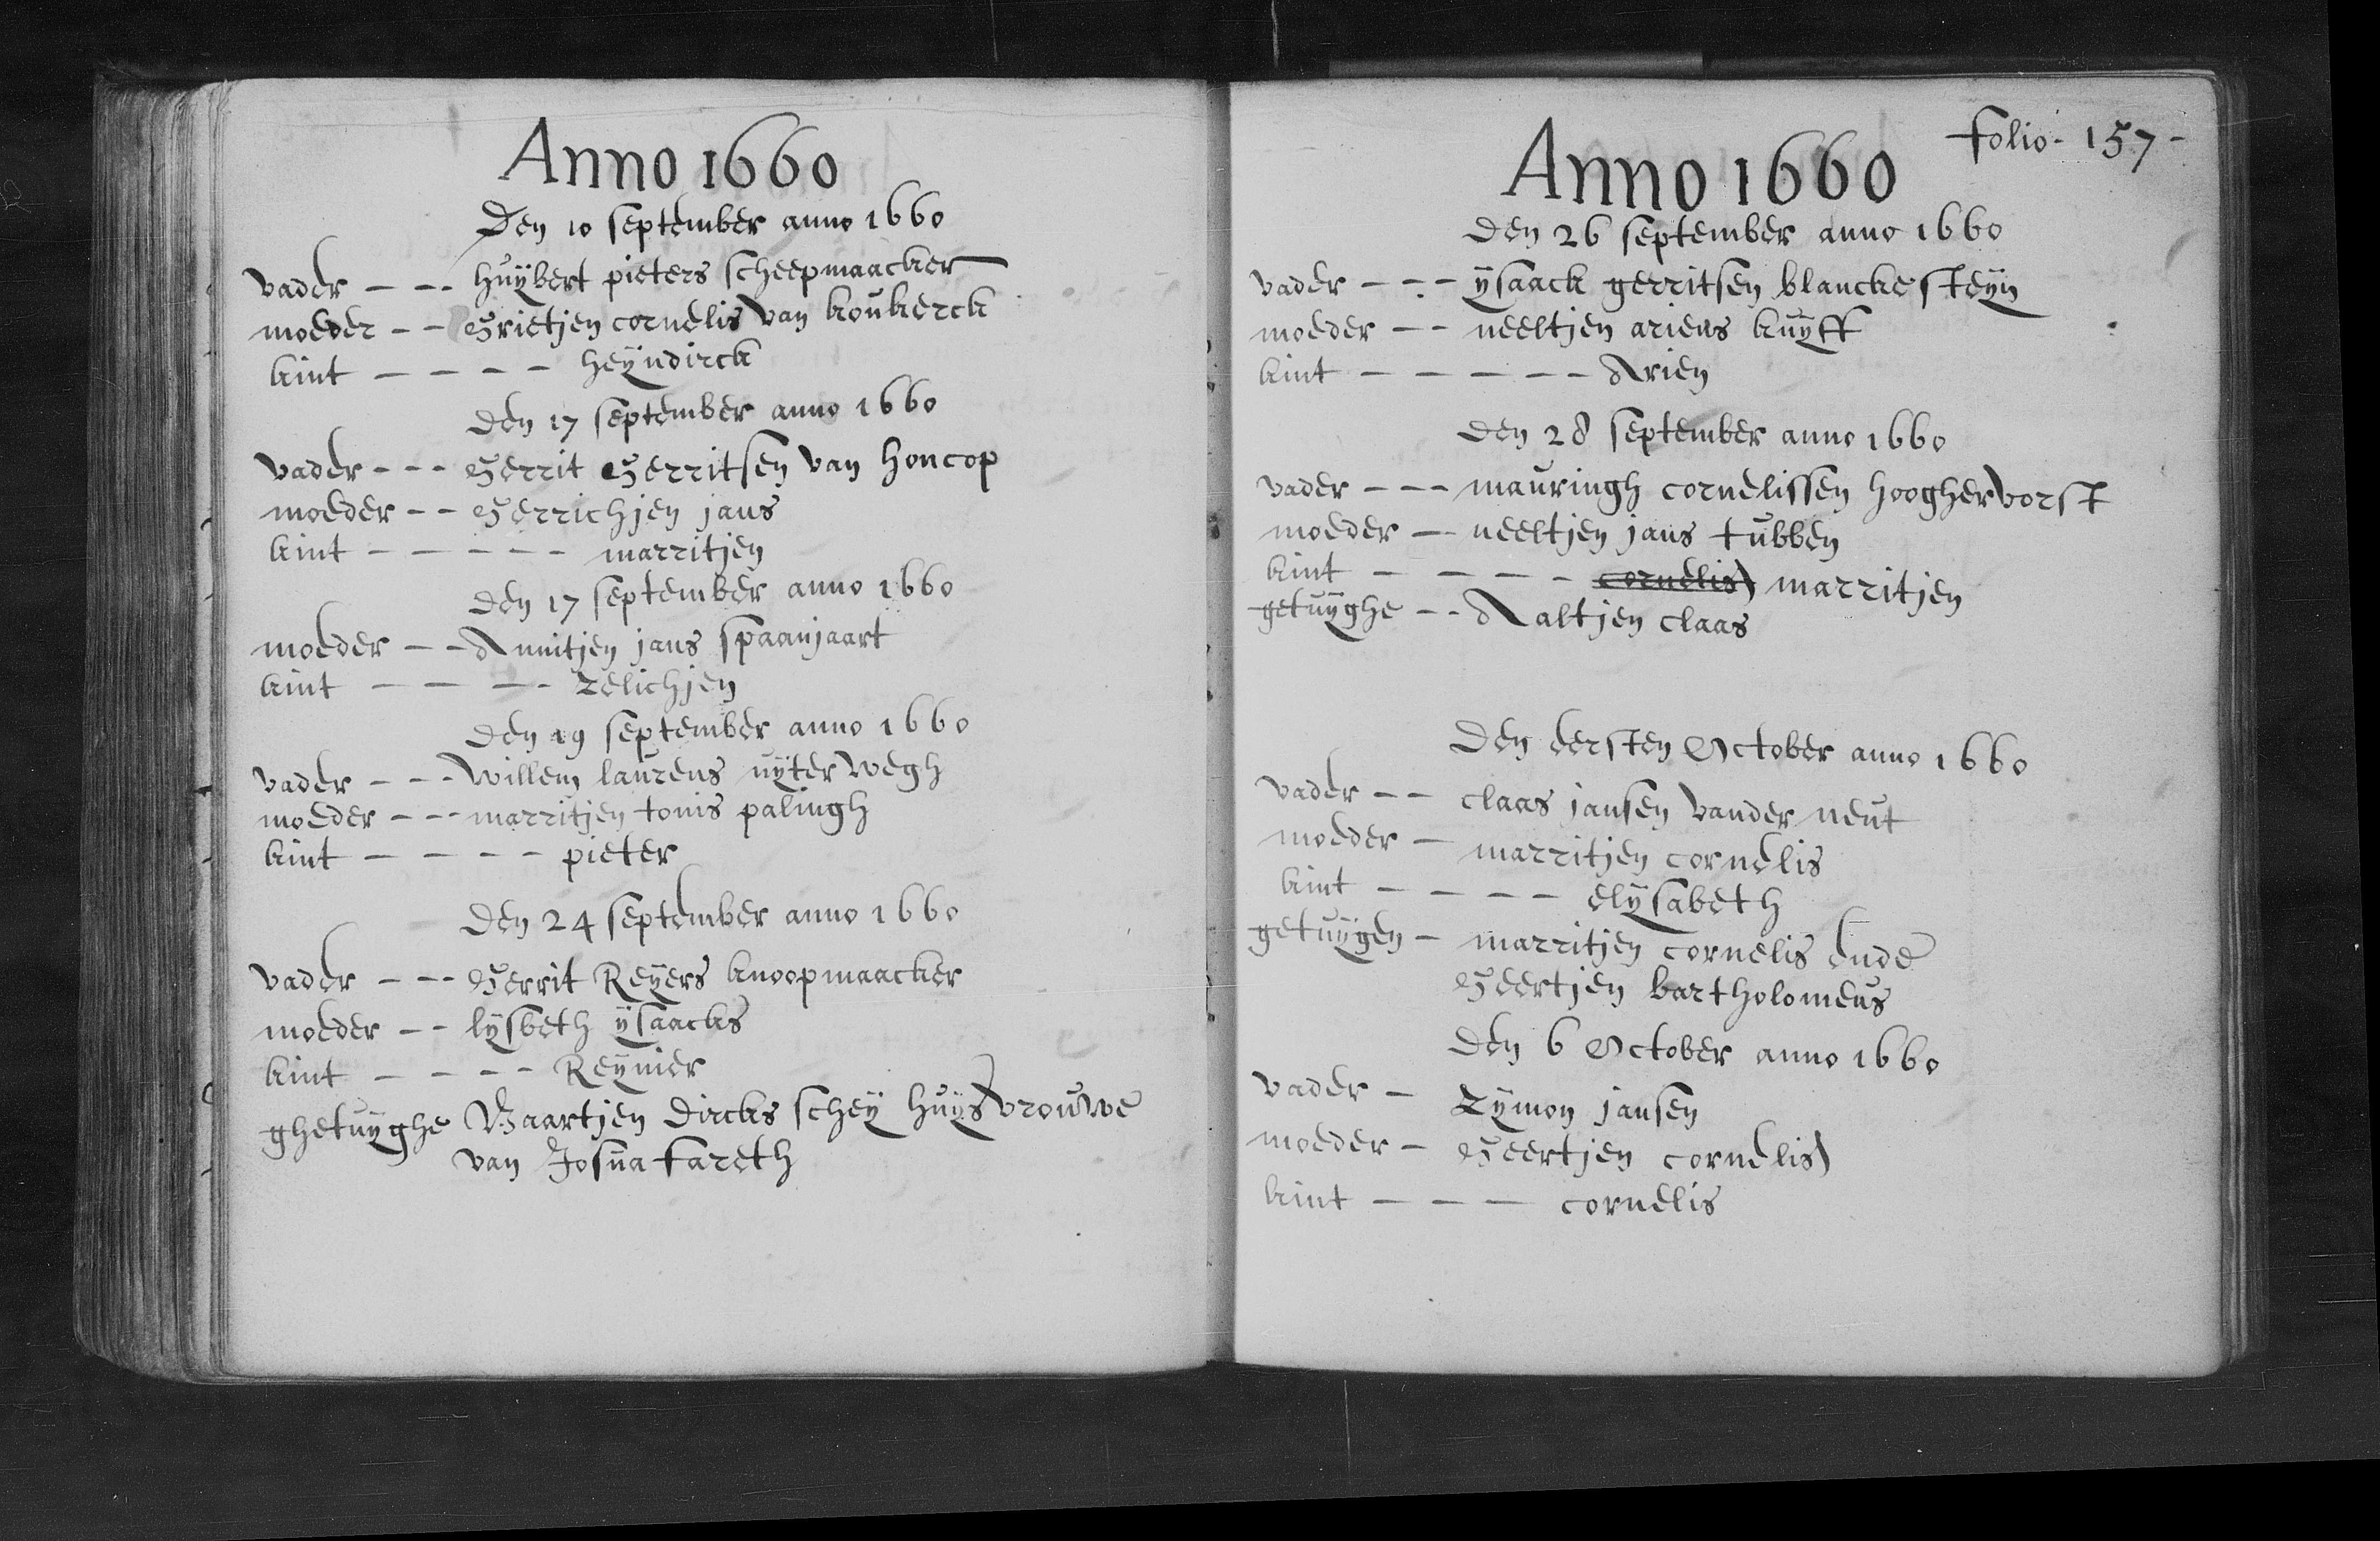 Anno 1660
Den 10 september anno 1660
vader - - - huÿbert pieters scheepmaacker
moeder - - Grietjen cornelis van koukerck
kint - - - - heÿndirck
den 17 september anno 1660
vader - - - Gerrit Gerritsen van honcop
moeder - - Gerrichjen jans
kint - - - - - marritjen
den 17 september anno 1660
moeder - - Annitjen jans spaanjaart
kint - - - - zelichjen
den 19 september anno 1660
vader - - - willem laurens uÿter wegh
moeder - - - marritjen tonis palingh
kint - - - - pieter
den 24 september anno 1660
vader - - - Gerrit Reÿers knoopmaacker
moeder - - lÿsbeth ÿsaacks
kint - - - - Reÿnier
ghetuÿghe Baartjen dircks scheÿ huÿsvrouwe
van Josua fareth
folio - 157 -
Anno 1660
den 26 september anno 1660
vader - - - ÿsaack gerritsen blanckesteÿn
moeder - - neeltjen ariens kuÿff
kint - - - - - Arien
den 28 september anno 1660
vader - - - mauringh cornelissen hooghervorst
moeder - - neeltjen jans tubben
kint - - - - cornelis marritjen
getuÿghe - - Aaltjen claas
den eersten October anno 1660
vader - - claas jansen vander neut
moeder - marritjen cornelis
kint - - - - elÿsabeth
getuÿgen - marritjen cornelis ende
Geertjen bartholomeus
den 6 October anno 1660
vader - Zÿmon jansen
moeder - Geertjen cornelis
kint - - - cornelis